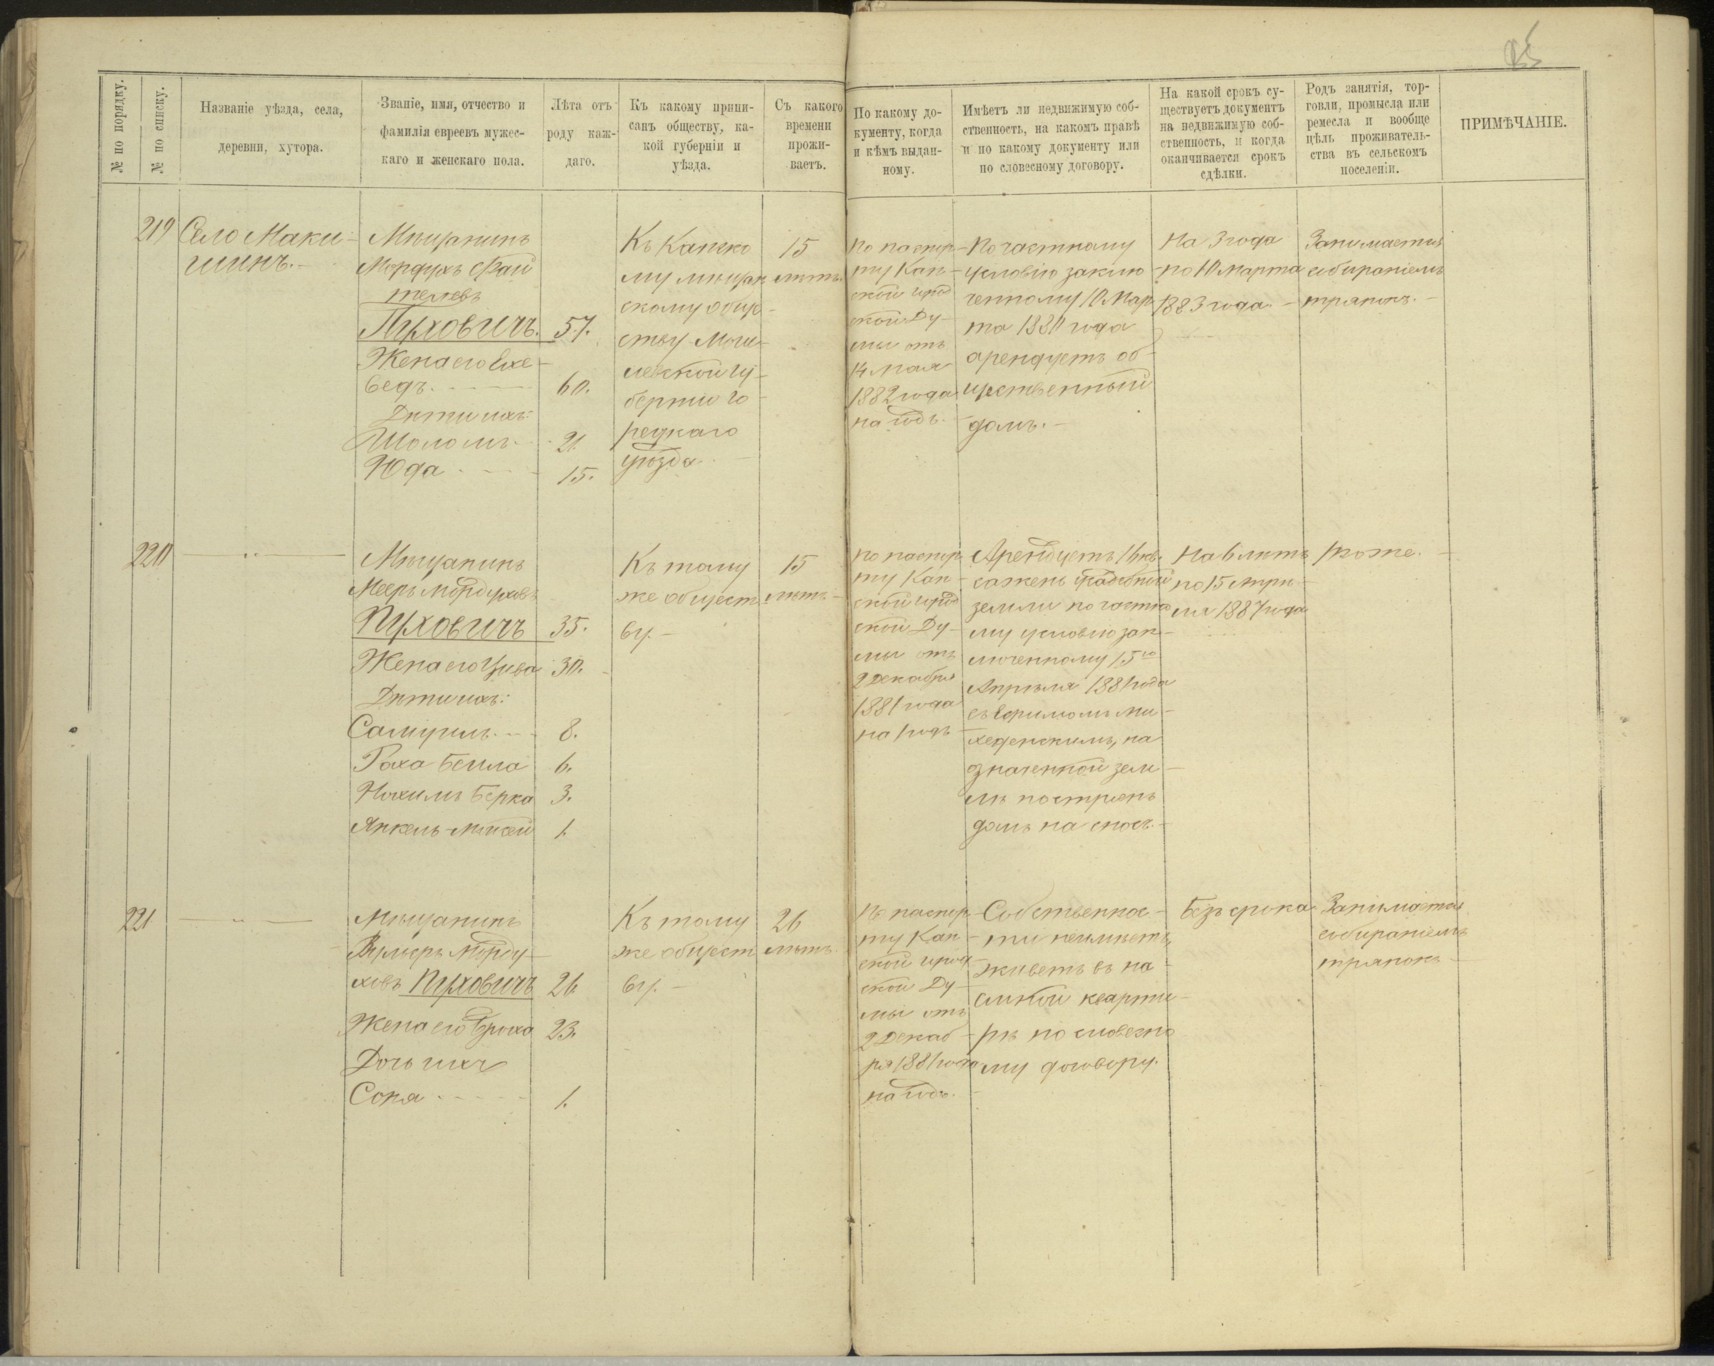 85
№ по порядку.
№ по списку.
Названіе уѣзда, села,
деревни, хутора.
Званіе, имя, отчество и
фамилія евреевъ мужес-
каго и женскаго пола.
Лѣта отъ
роду каж-
даго.
Къ какому припи-
санъ обществу, ка-
кой губерніи и
уѣзда.
Съ какого
времени
прожи-
ваетъ.
По какому до-
кументу, когда
и кѣмъ выдан-
ному.
Имѣетъ ли недвижимую соб-
ственность, на какомъ правѣ
и по какому документу или
по словесному договору.
На какой срокъ су-
ществуетъ документъ
на недвижимую соб-
ственность, и когда
оканчивается срокъ
сдѣлки.
Родъ занятія, тор-
говли, промысла или
ремесла и вообще
цѣль проживатель-
ства въ сельскомъ
поселеніи.
ПРИМѢЧАНІЕ.
219
Село Маки-
шинъ.
Мѣщанинъ
Мордухъ Фай
телевъ
Пуховичъ. 57.
Жена его
60.
Дѣти ихъ:
Шоломъ 21
Юда 15.
Къ Капско
му мѣщан
скому общ-
ству Моги-
левской гу-
берніи Го-
рецкаго
уѣзда.
15
лѣтъ.
По паспор-
ту Кап-
ской город
ской Ду-
мы отъ
14 мая
1882 года
на годъ.
По частному
условію заклю
ченному 10 Мар
та 1880 года
арендуетъ об-
щественный
домъ.
На 3 года
по 10 марта
1883 года.
Занимается
собираніемъ
тряпокъ.
220
"
Мѣщанинъ
Мееръ Мордуховъ
Пуховичъ 35.
Жена его Цива 30.
Дѣти ихъ:
Самуилъ 8.
Раха Бейла 6.
Нохимъ Берка 3.
Янкель-Мовсей 1.
Къ тому
же общест
ву.
15
лѣтъ.
По паспор
ту Кап-
ской город
ской Ду-
мы отъ
2 Декабря
1881 года
на годъ
Арендуетъ 16 кв.
сажень
земли по частно
му условію зак-
люченному 15го
Апрѣля 1881 года
съ
на
означенной зем-
лѣ построенъ
домъ на сносъ.
На 6 лѣтъ
по 15 Апрѣ-
ля 1887 года
тоже.
221
"
Мѣщанинъ
Морду-
ховъ Пуховичъ 26
Жена его Броха 23.
Дочь ихъ
Соня 1.
Къ тому
же общест
ву.
26
лѣтъ.
По паспор
ту Кап-
ской город
ской Ду-
мы отъ
2 Декаб-
ря 1881 года
на годъ.
Собственнос-
ти неимѣетъ,
живетъ въ на-
емной кварти-
рѣ по словесно
му договору.
Безъ срока
Занимается
собираніемъ
тряпокъ